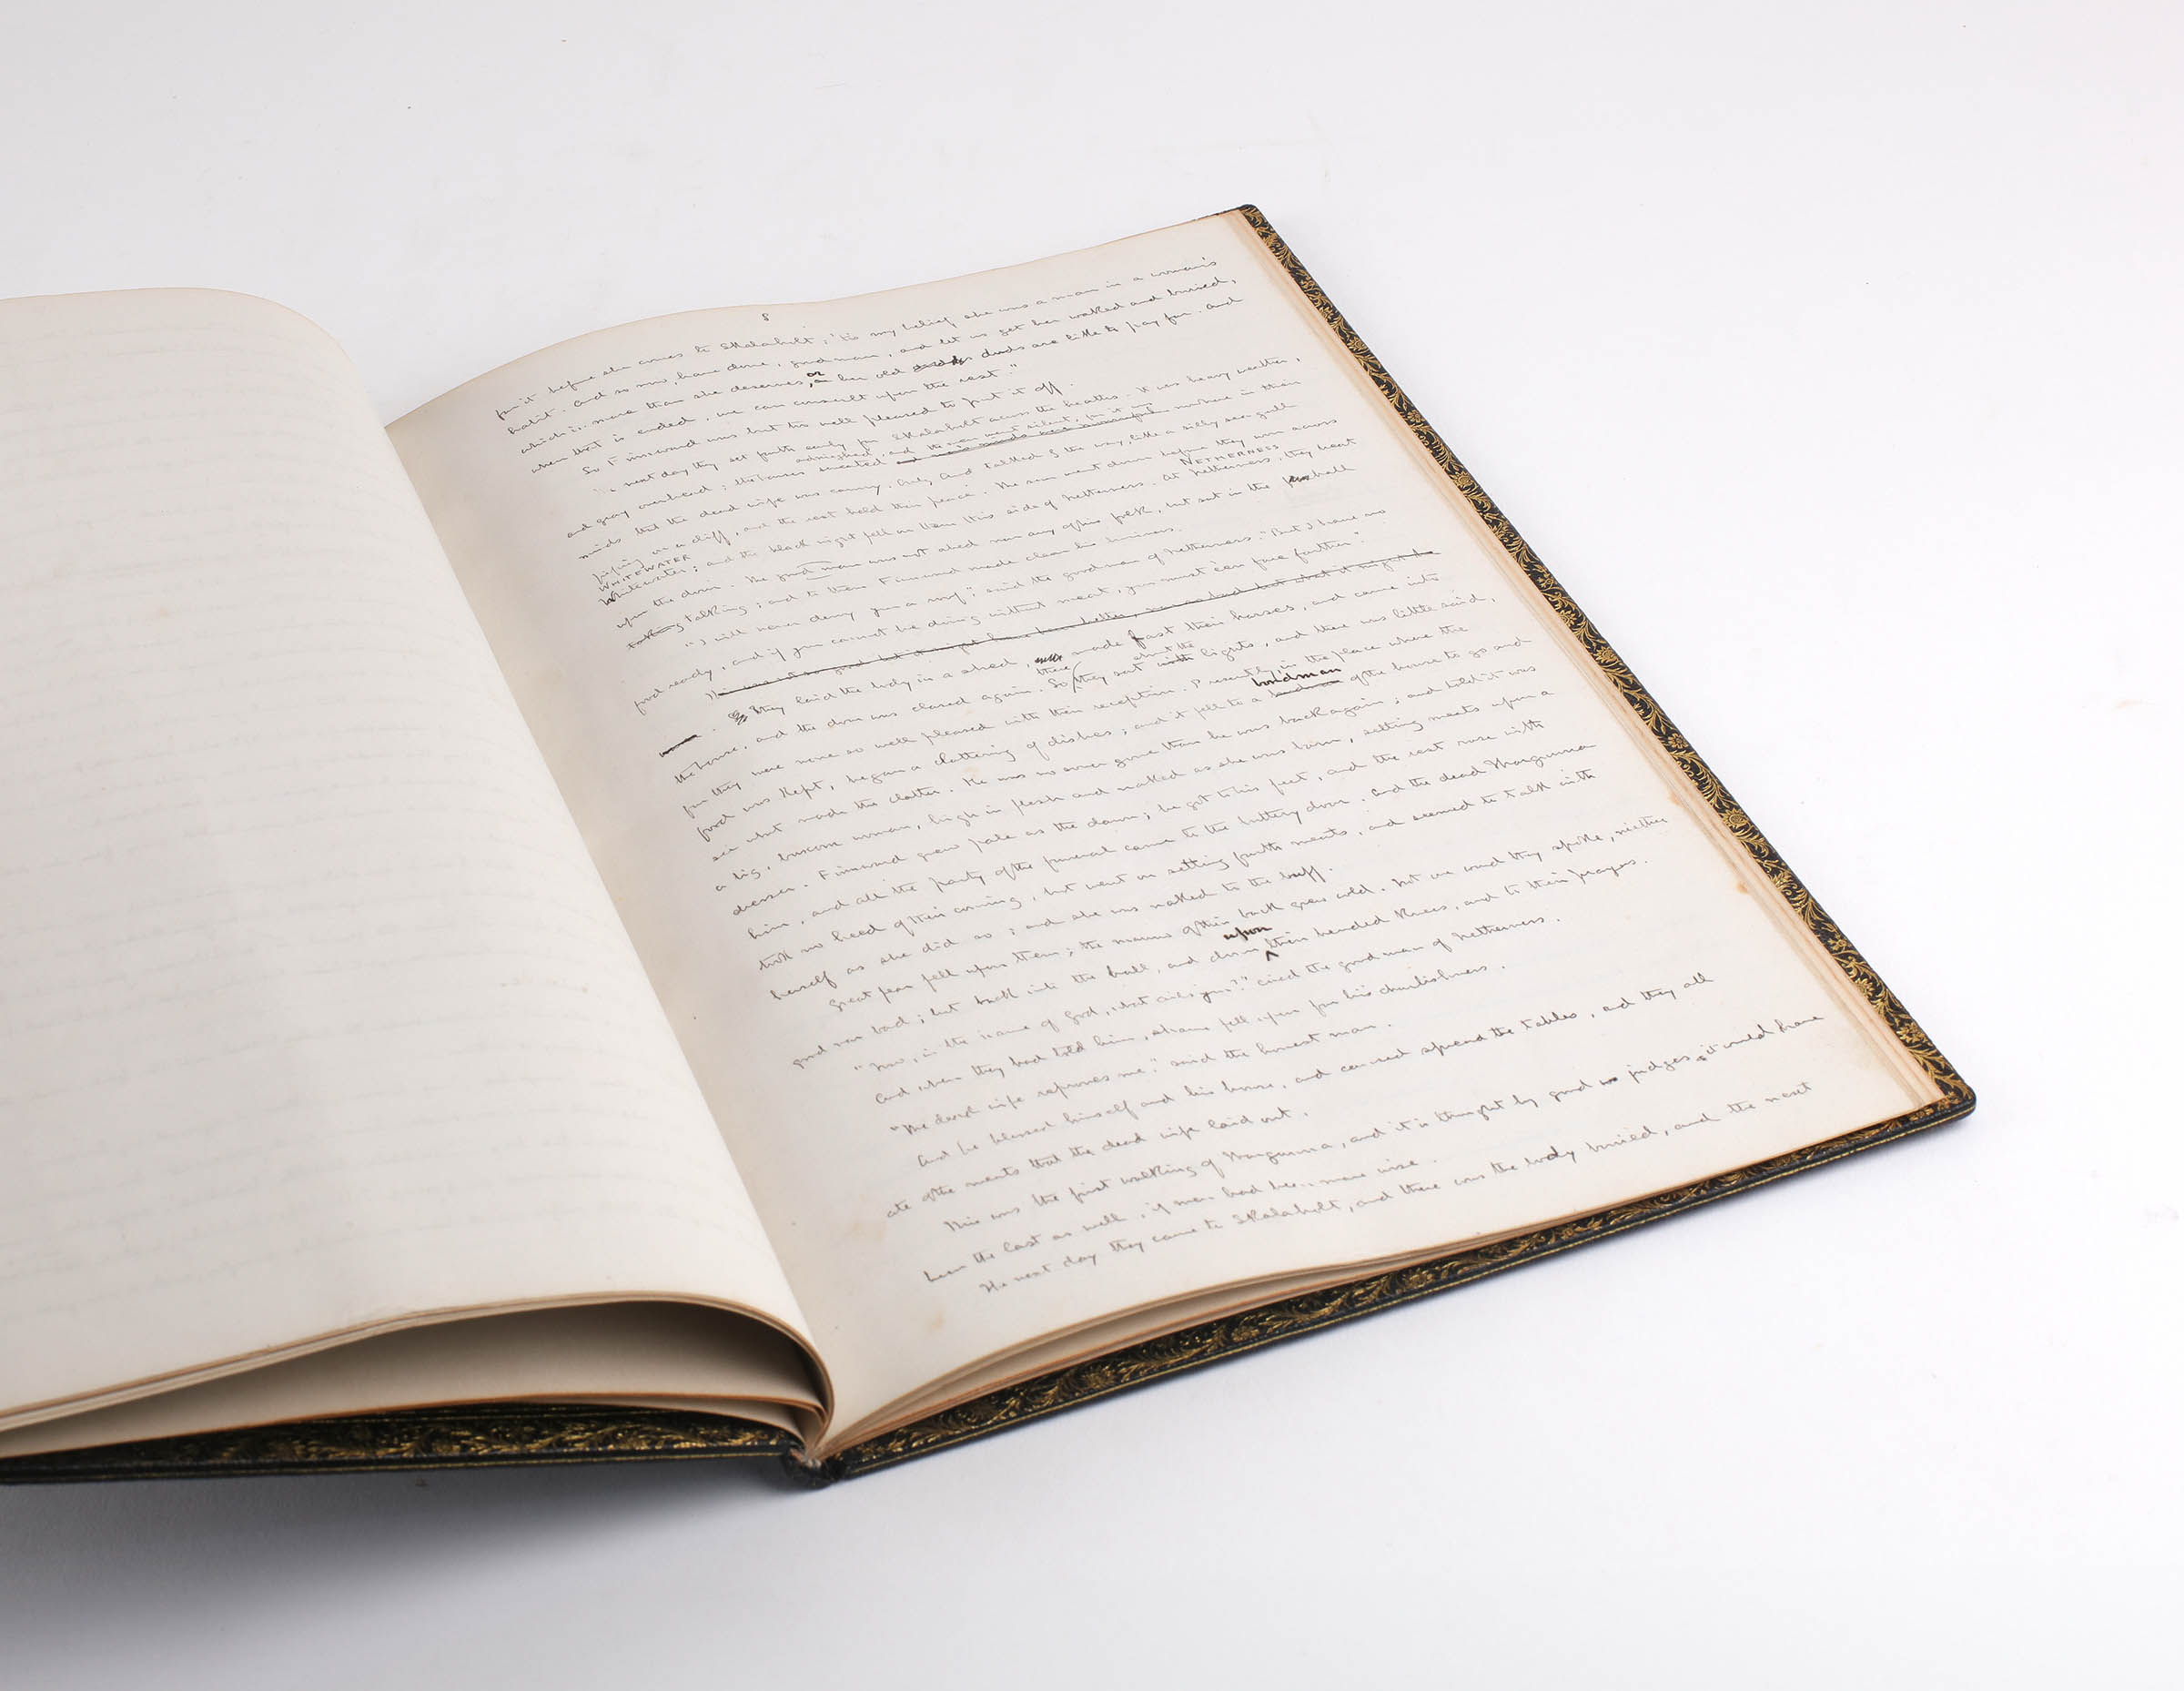 8
for it before she comes to Skalaholt; 'tis my belief she was a man in a woman's
habit. And so now, have done, good man, and let us get her waked and buried,
which is more than she deserves, or her old duds are like to pay for. And
when that is ended, we can consult upon the rest."
So Finnward was but too well pleased to put it off.
The next day they set forth early for Skalaholt across the heaths. It was heavy weather,
and gray overhead; the horses sweated and the men went silent, for it was nowhere in their
minds that the dead wife was canny. Only Aud talked by the way, like a silly sea-gull
piping on a cliff, and the rest held their peace. The sun went down before they were across
WHITEWATER NETHERNESS
Whitewater; and the black night fell on them this side of Netherness. At Netherness, they beat
upon the door. The good man was not abed nor any of his folk, but sat in the hall
talking; and to them Finnward made clear his business.
"I will never deny you a roof," said the good man of Netherness. "But I have no
food ready, and if you cannot be doing without meat, you must e'en fare farther."
They laid the body in a shed, made fast their horses, and came into
the house, and the door was closed again. So there they sat about the lights, and there was little said,
for they were none so well pleased with their reception. Presently, in the place where the
food was kept, began a clattering of dishes; and it fell to a bondman of the house to go and
see what made the clatter. He was no sooner gone than he was back again; and told it was
a big, buxom woman, high in flesh and naked as she was born, setting meats upon a
dresser. Finnward grew pale as the dawn; he got to his feet, and the rest rose with
him, and all the party of the funeral came to the buttery door. And the dead Thorgunna
took no heed of their coming, but went on setting forth meats, and seemed to talk with
herself as she did so; and she was naked to the buff.
Great fear fell upon them; the marrow of their back grew cold. Not one word they spoke, neither
good nor bad; but back into the hall, and down upon their bended knees, and to their prayers.
"Now, in the name of God, what ails you?" cried the good man of Netherness.
And when they had told him, shame fell upon him for his churlishness.
"The dead wife reproves me," said the honest man.
And he blessed himself and his house, and caused spread the tables, and they all
ate of the meats that the dead wife laid out.
This was the first walking of Thorgunna, and it is thought by good judges it would have
been the last as well, if men had been more wise.
The next day they came to Skalaholt, and there was the body buried, and the next